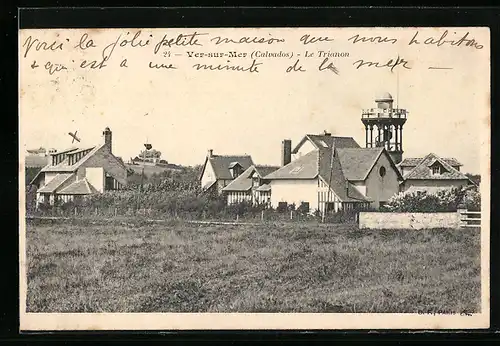 Voici la jolie petite maison que nous habitons
24 — Ver-sur-Mer (Calvados) - Le Trianon
& qui est à une minute de la mer.